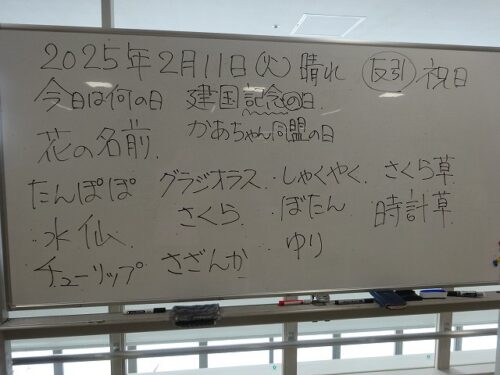 2025年2月11日(火) 晴れ 友引 祝日
今日は何の日 建国記念の日
かあちゃん同盟の日
花の名前
たんぽぽ グラジオラス しゃくやく さくら草
水仙 さくら ぼたん 時計草
チューリップ さざんか ゆり